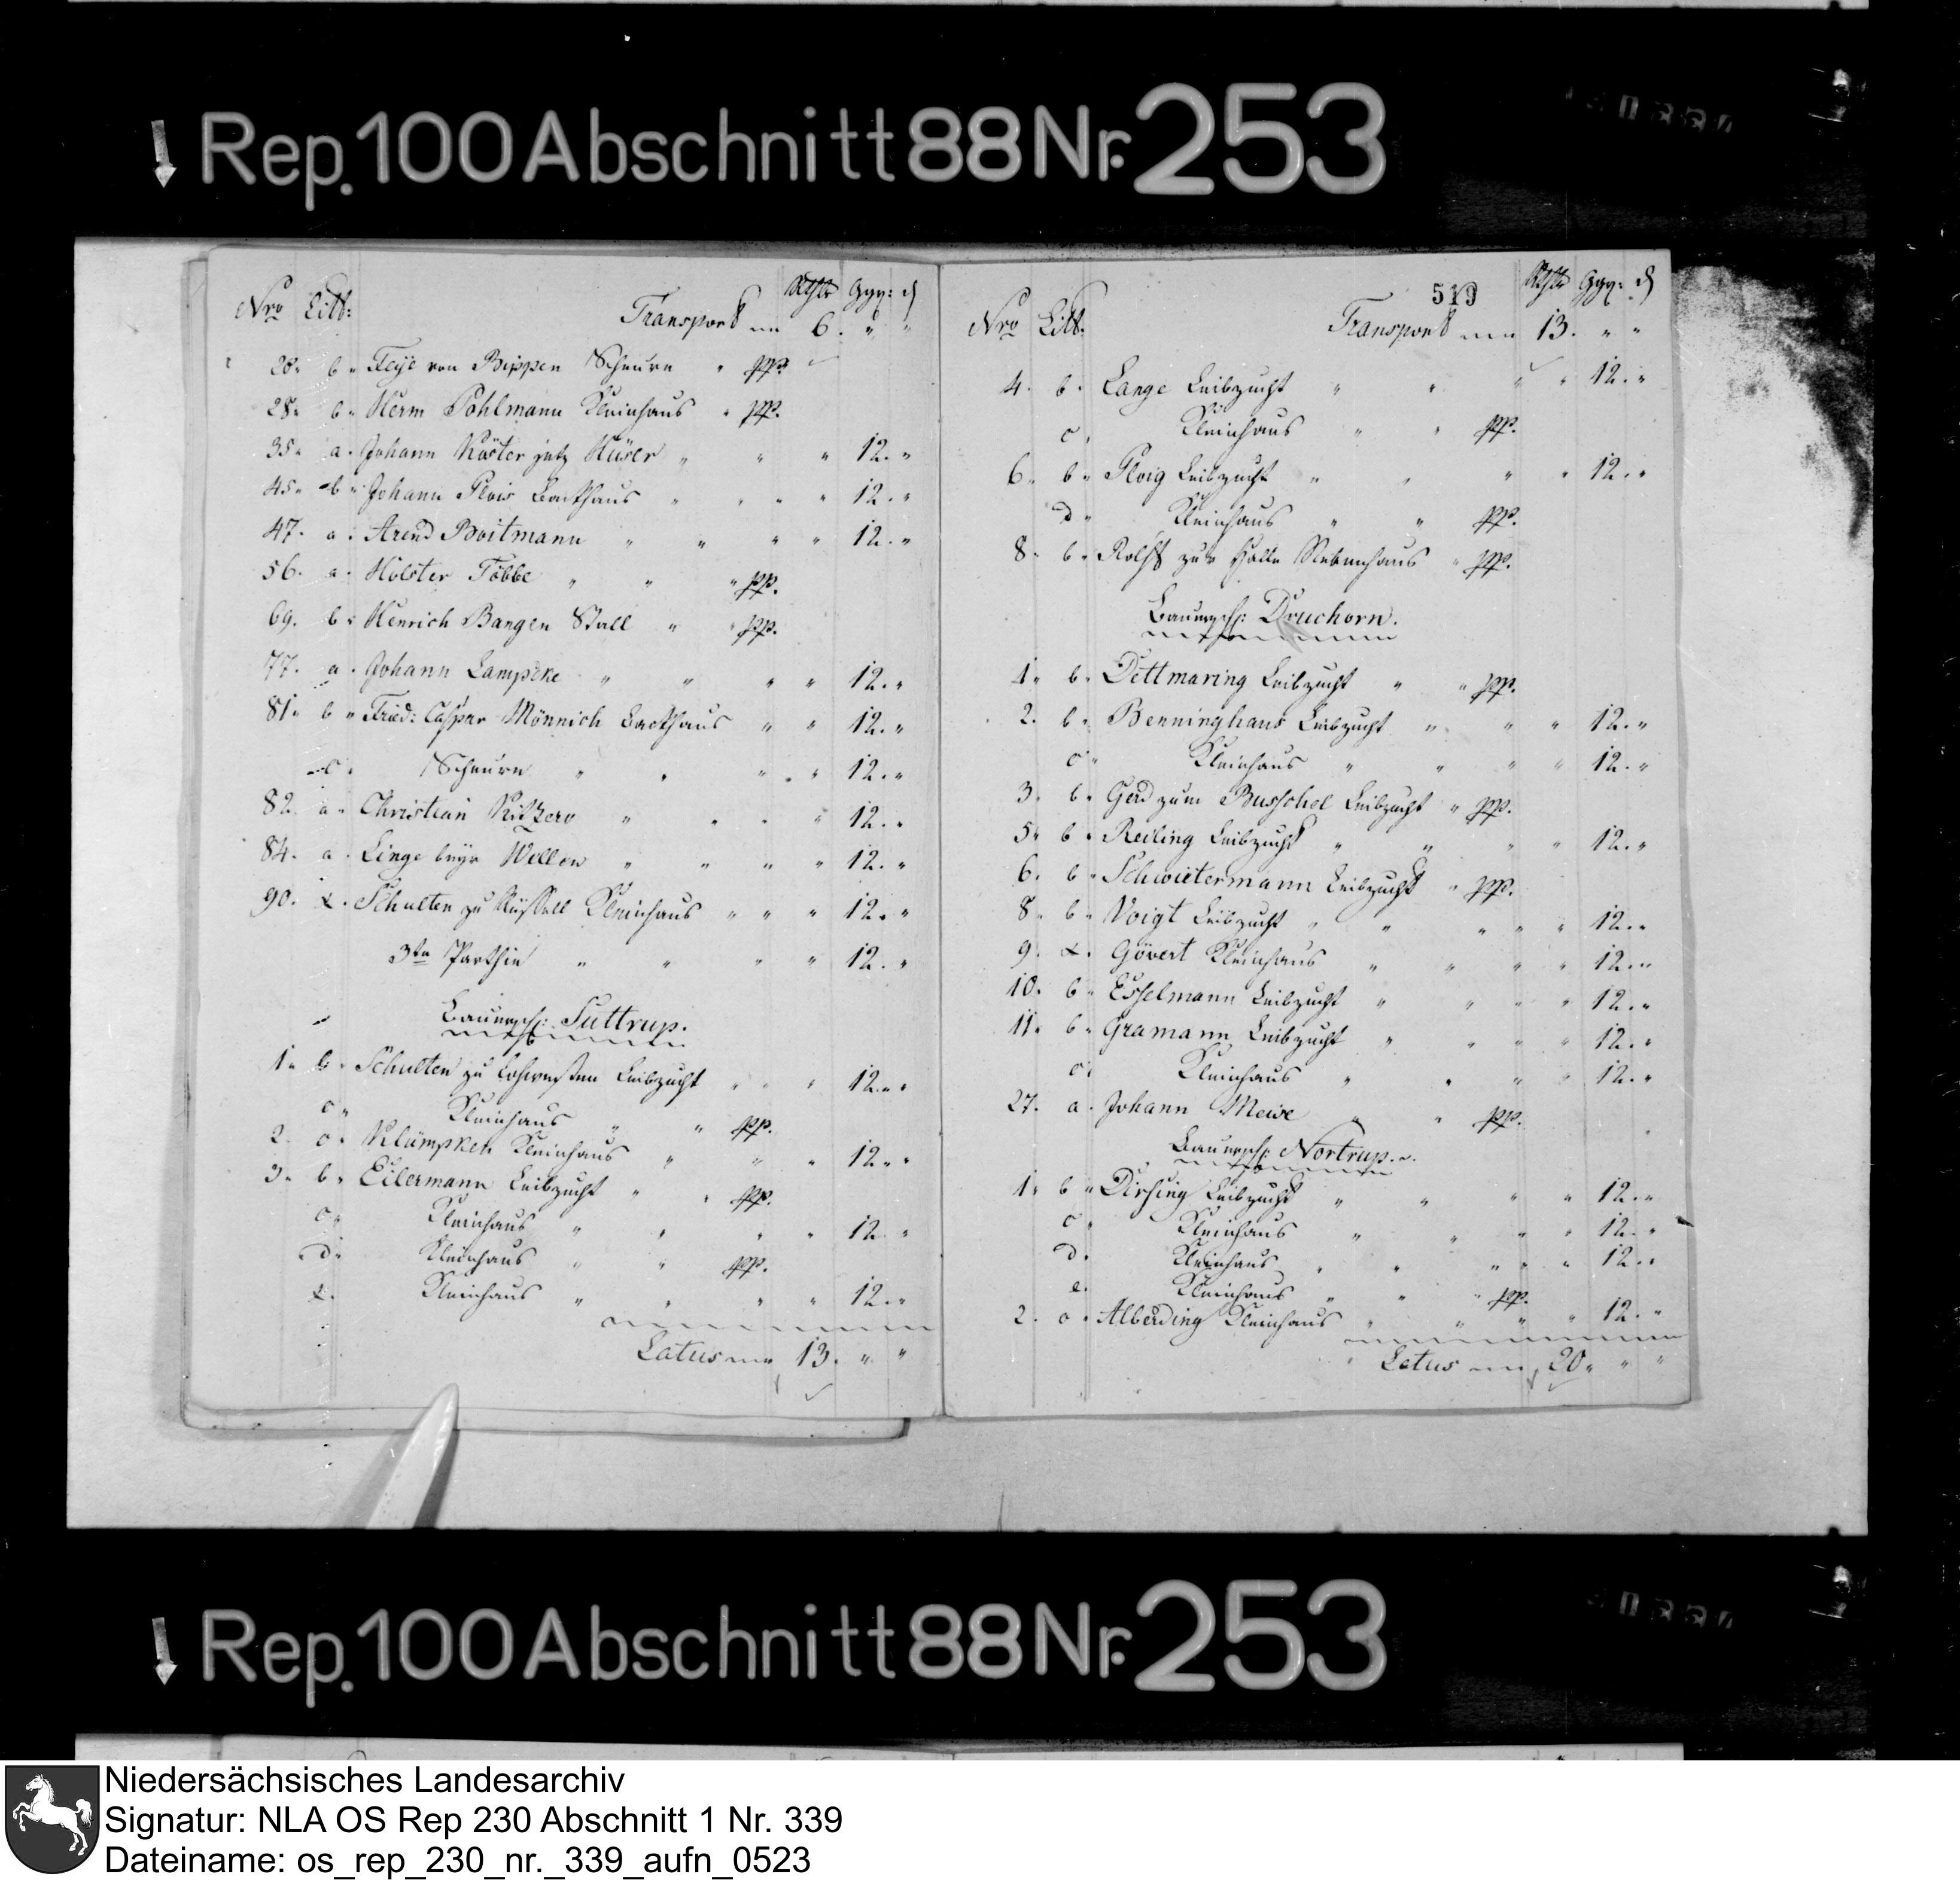 Rep. 100 Abschnitt 88 Nr. 253
Nro Litt: Rthlr Ggr: d
Transport — 6. " "
28. b. Feye von Bippen Scheure " pp.
28. b. Herm Pohlmann Kleinhaus " pp.
35. a. Johann Köster jetz Hüser " " " 12. "
45. b. Johann Plois Backhaus " " " " 12. "
47. a. Arend Boitmann " " " " 12. "
56. a. Holster Többe " " " pp.
69. b. Henrich Bangen Stall " " pp.
77. a. Johann Lampcke " " " " 12. "
81. b. Fried: Caspar Mönnich Backhaus " " 12. "
c. Scheure " " " " 12. "
82. a. Christian " " " " 12. "
84. a. Linge " " " " 12. "
90. x. Schulten zu Rüssell Kleinhaus " " " 12. "
3te Parthie " " " " 12. "
Bauersch: Suttrup.
1. b. Schulten zu Leibzucht " " " 12. "
c. Kleinhaus " " pp.
2. c. Klümpken Kleinhaus " " " 12. "
3. b. Eilermann Leibzucht " " pp.
c. Kleinhaus " " " " 12. "
d. Kleinhaus " " pp.
x. Kleinhaus " " " " 12. "
Latus — 13. " "
519
Nro Litt. Rthlr Ggr: d
Transport — 13. " "
4. b. Lange Leibzucht " " " " 12. "
c. Kleinhaus " " pp.
6. b. Ploig Leibzucht " " " " 12. "
d. Kleinhaus " " pp.
8. b. Rolfs zur Halle Nebenhaus " pp.
Bauersch: Druchorn.
1. b. Dettmaring Leibzucht " " pp.
2. b. Benninghaus Leibzucht " " " 12. "
c. Kleinhaus " " " " 12. "
3. b. Gerd zum Busschel Leibzucht " pp.
5. b. Reiling Leibzucht " " " " 12. "
6. b. Schwietermann Leibzucht " pp.
8. b. Voigt Leibzucht " " " " " 12. "
9. x. Gövert Kleinhaus " " " " 12. "
10. b. Esselmann Leibzucht " " " " 12. "
11. b. Gramann Leibzucht " " " " 12. "
c. Kleinhaus " " " " 12. "
27. a. Johann Meise " " pp.
Bauersch: Nortrup.
1. b. Dirsing Leibzucht " " " " 12. "
c. Kleinhaus " " " " 12. "
d. Kleinhaus " " " " " 12. "
e. Kleinhaus " " " pp.
2. c. Alberding Kleinhaus " " " " 12. "
Latus — 20. " "
Rep. 100 Abschnitt 88 Nr. 253
Niedersächsisches Landesarchiv
Signatur: NLA OS Rep 230 Abschnitt 1 Nr. 339
Dateiname: os_rep_230_nr._339_aufn_0523